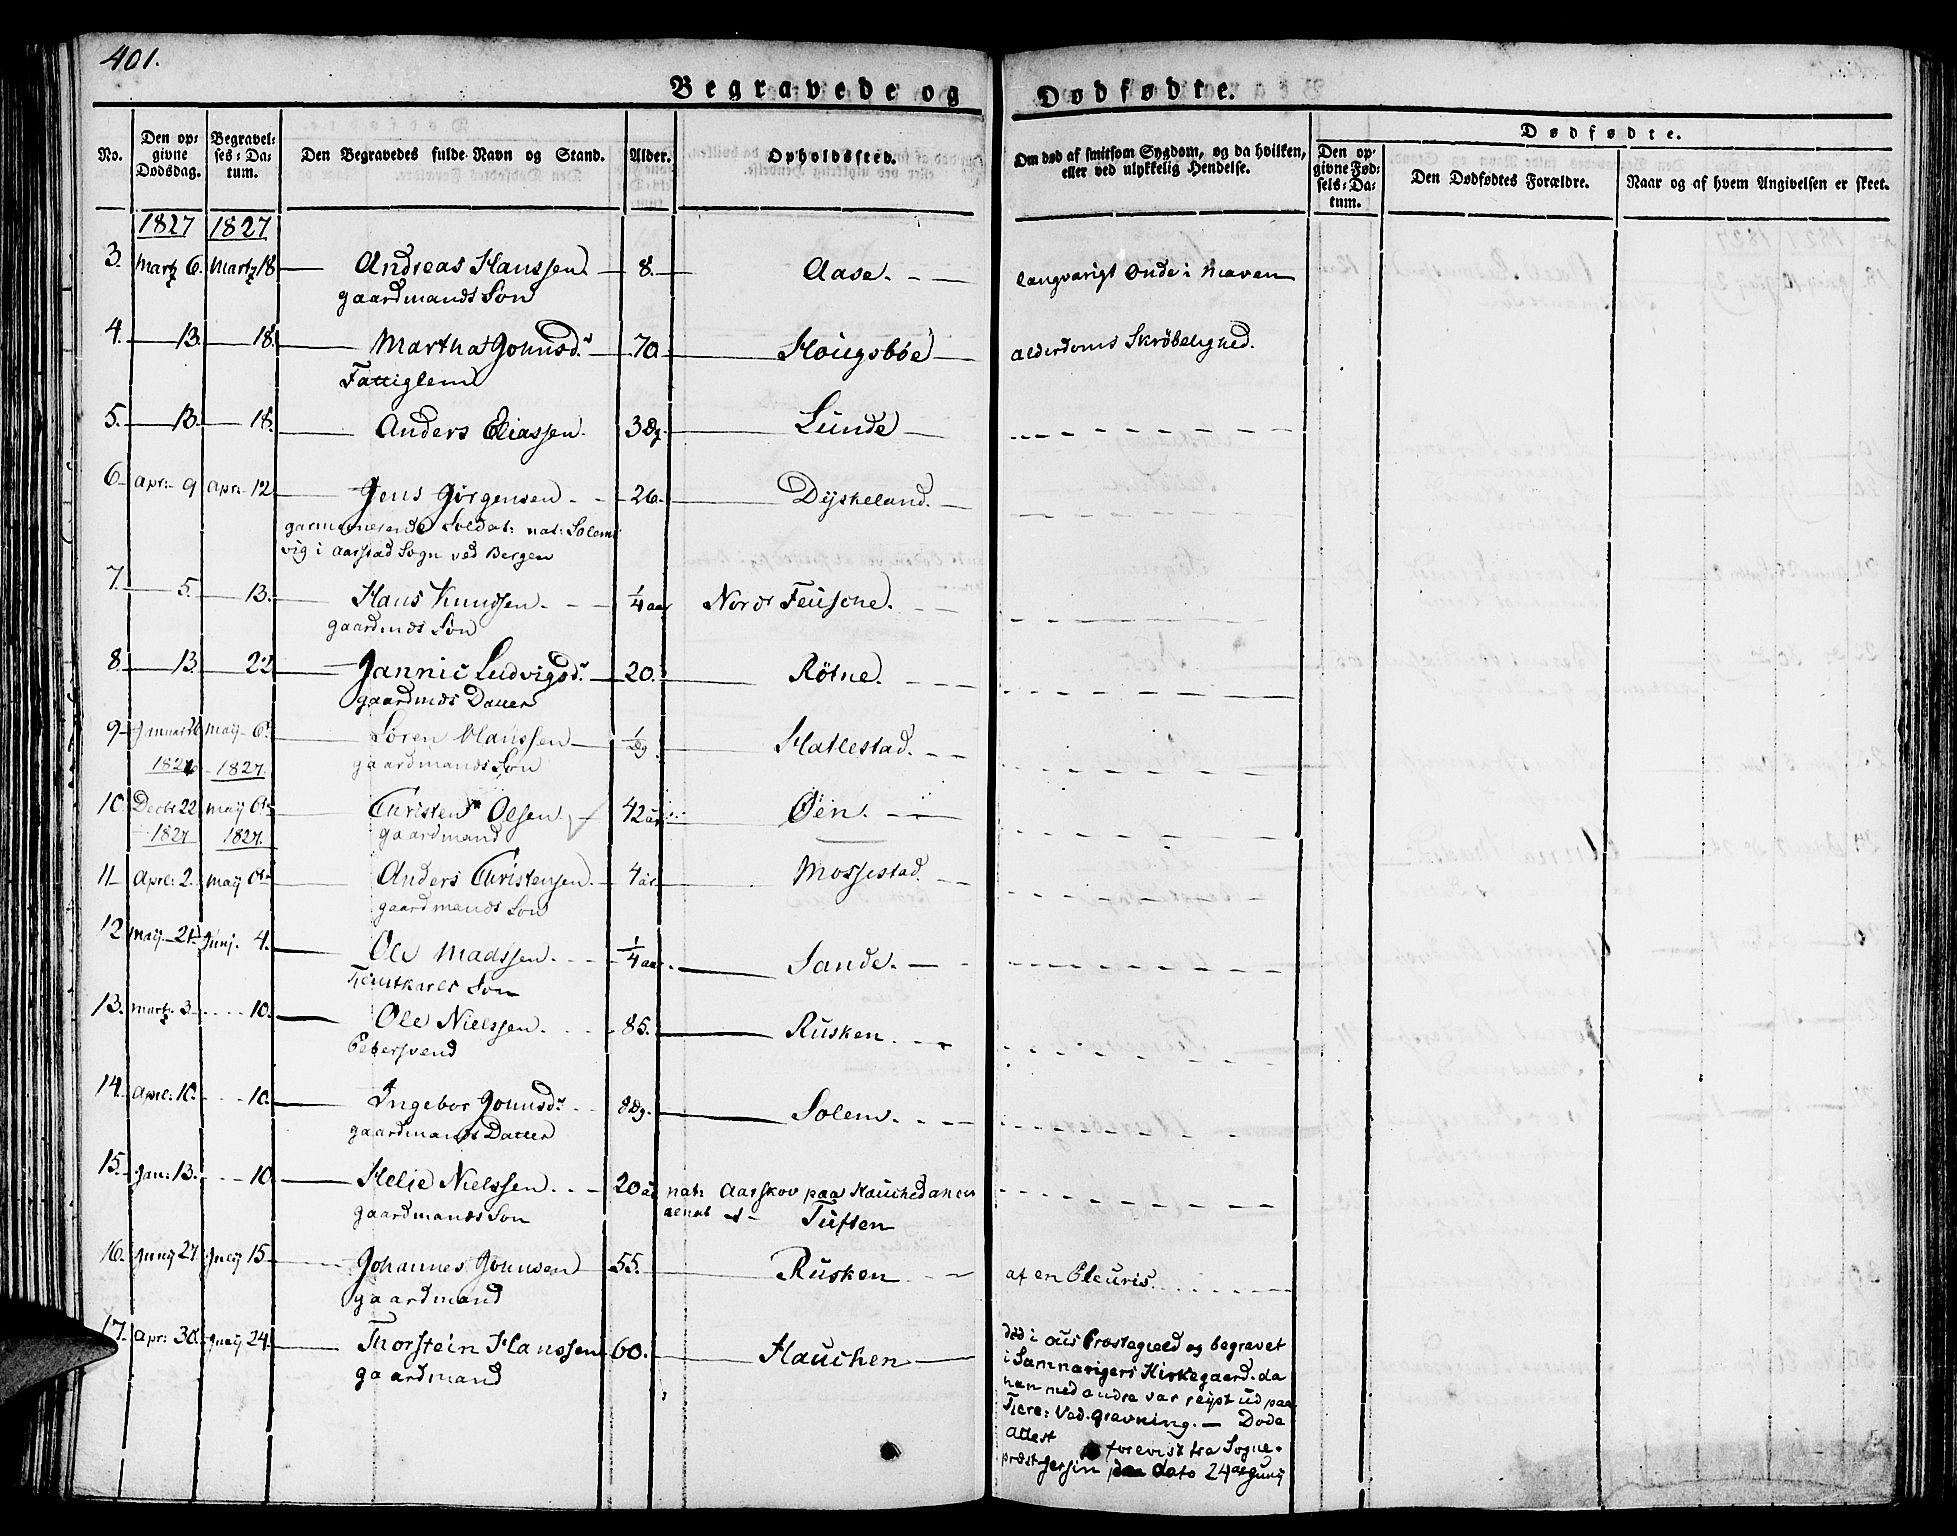 401.
Begravede og Dødfødte.
No. | Den opgivne Dødsdag. | Begravelses-Datum. | Den Begravedes fulde Navn og Stand. | Alder. | Opholdssted. | Om død af smitsom Sygdom, og da hvilken, eller ved ulykkelig Hendelse. | Dødfødte. | Den opgivne Fødsels-Datum. | Den Dødfødtes Forældre. | Naar og af hvem Angivelsen er skeet.
1827 1827
3. Martz 6. Martz 18 Andreas Hanssen. 8. Aase. langvarigt Onde i Maven
gaardmands Søn
4. 13. 18. Martha Johnsd. 70 Hougsbøe Alderdoms Skrøbelighed.
Fattiglem
5. 13. 18. Anders Eliassen. 3 Dg. Lunde
6 Apr: 9 Apr: 12 Jens Jørgensen 26. Dyskeland.
garnisonerende Soldat: nat: Solem
vig i Aarstad Sogn ved Bergen
7. 5. 13. Hans Knudsen. 1/4 aar Nordr
gaardmds Søn
8. 13. 22 Jannic Ludvigsd. 20. Røtne.
gaardmds Datter
9 Januar 26 May 6. Søren Hanssen 1/2 Dg Hatlestad.
gaardmands Søn
1827.
10. Decbr 22 May 6 Christen Olsen 42 aar Øen.
1827 1827. gaardmand
11 Apr: 2. May 6 Anders Christensen. 4 aar Mossestad.
gaardmands Søn
12 May 21 Junj. 4. Ole Madssen. 1/4 aar Sande.
Tjenstkarls Søn
13. Martz 3 10. Ole Nielssen. 85. Rusken
Pebersvend
14. Apr: 10. 10. Ingebor Johnsd. 8 Dg. Solem.
gaardmands Datter
15. Jan: 13. 10. Helje Nielssen. 20 aar nat: Aarskov paa
gaardmands Søn Tuften
16. Juny 27 July 15 Johannes Johnsen 55. Rusken af en Pleuris.
gaardmand
17. Apr: 30. 24. Thorstein Hanssen 60. Hauchen
gaardmand
død i Præstegield og begravet
i Samnangers Kirkegaard. da
han med andre var rejst ud paa
Tiere: Ved. gravning. — Døds
Attest forevist fra Sogne-
præst Gersin dato 24de Juny